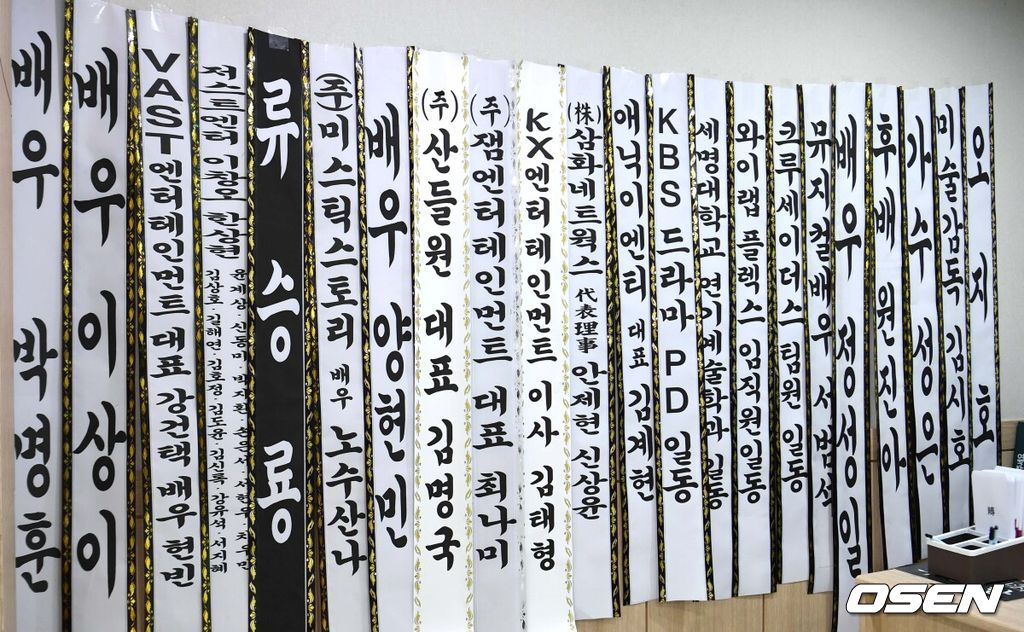 배우 박명훈
배우 이상이
VAST엔터테인먼트 대표 강건택 배우 현빈
저스트엔터 이창오 한상현
류승룡
(주)미스틱스토리 배우 노수산나
배우 양현민
(주)산들원 대표 김명국
(주)잼엔터테인먼트 대표 최나미
KX엔터테인먼트 이사 김태형
(株)삼화네트웍스 代表理事 안제현 신상윤
애닉이엔티 대표 김계현
KBS 드라마 PD 일동
세명대학교 연기예술학과 일동
와이랩 플렉스 임직원일동
크루세이더스 팀원 일동
뮤지컬배우 서범석
배우 정성일
후배 원진아
가수 성은
미술감독 김시호
오지호
OSEN